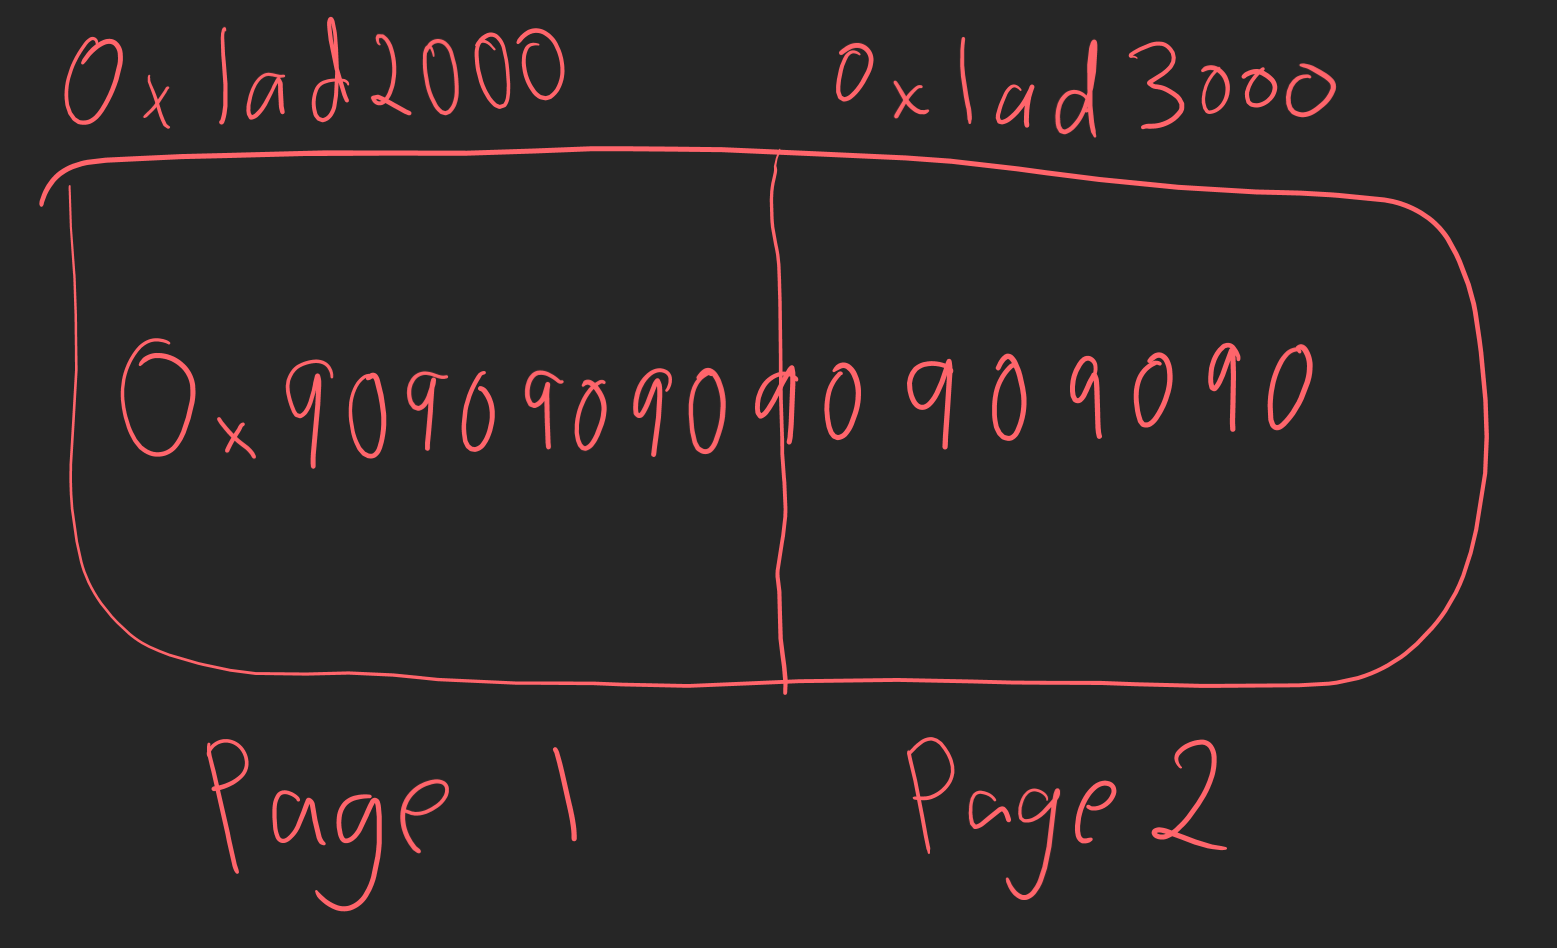 0x1ad2000 0x1ad3000
0x9090909090909090
Page 1 Page 2